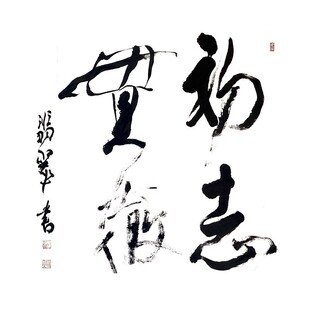 初志
貫徹
書